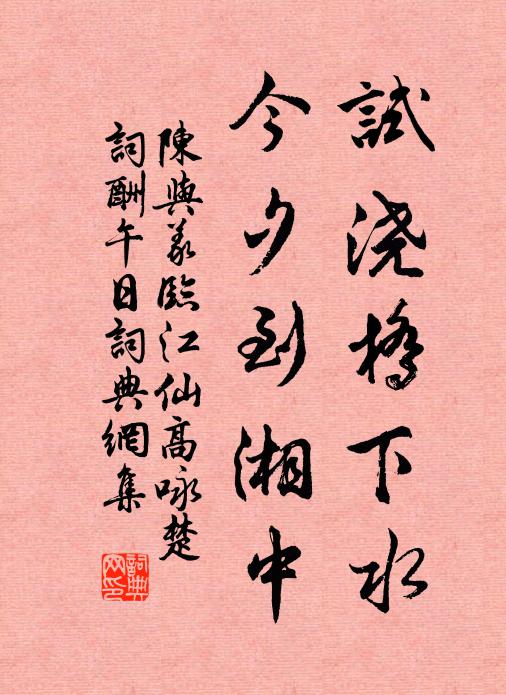 試浇橋下水
今夕到湘中
陳與義臨江仙高咏楚
詞酬午日詞典網集
詞典
网印